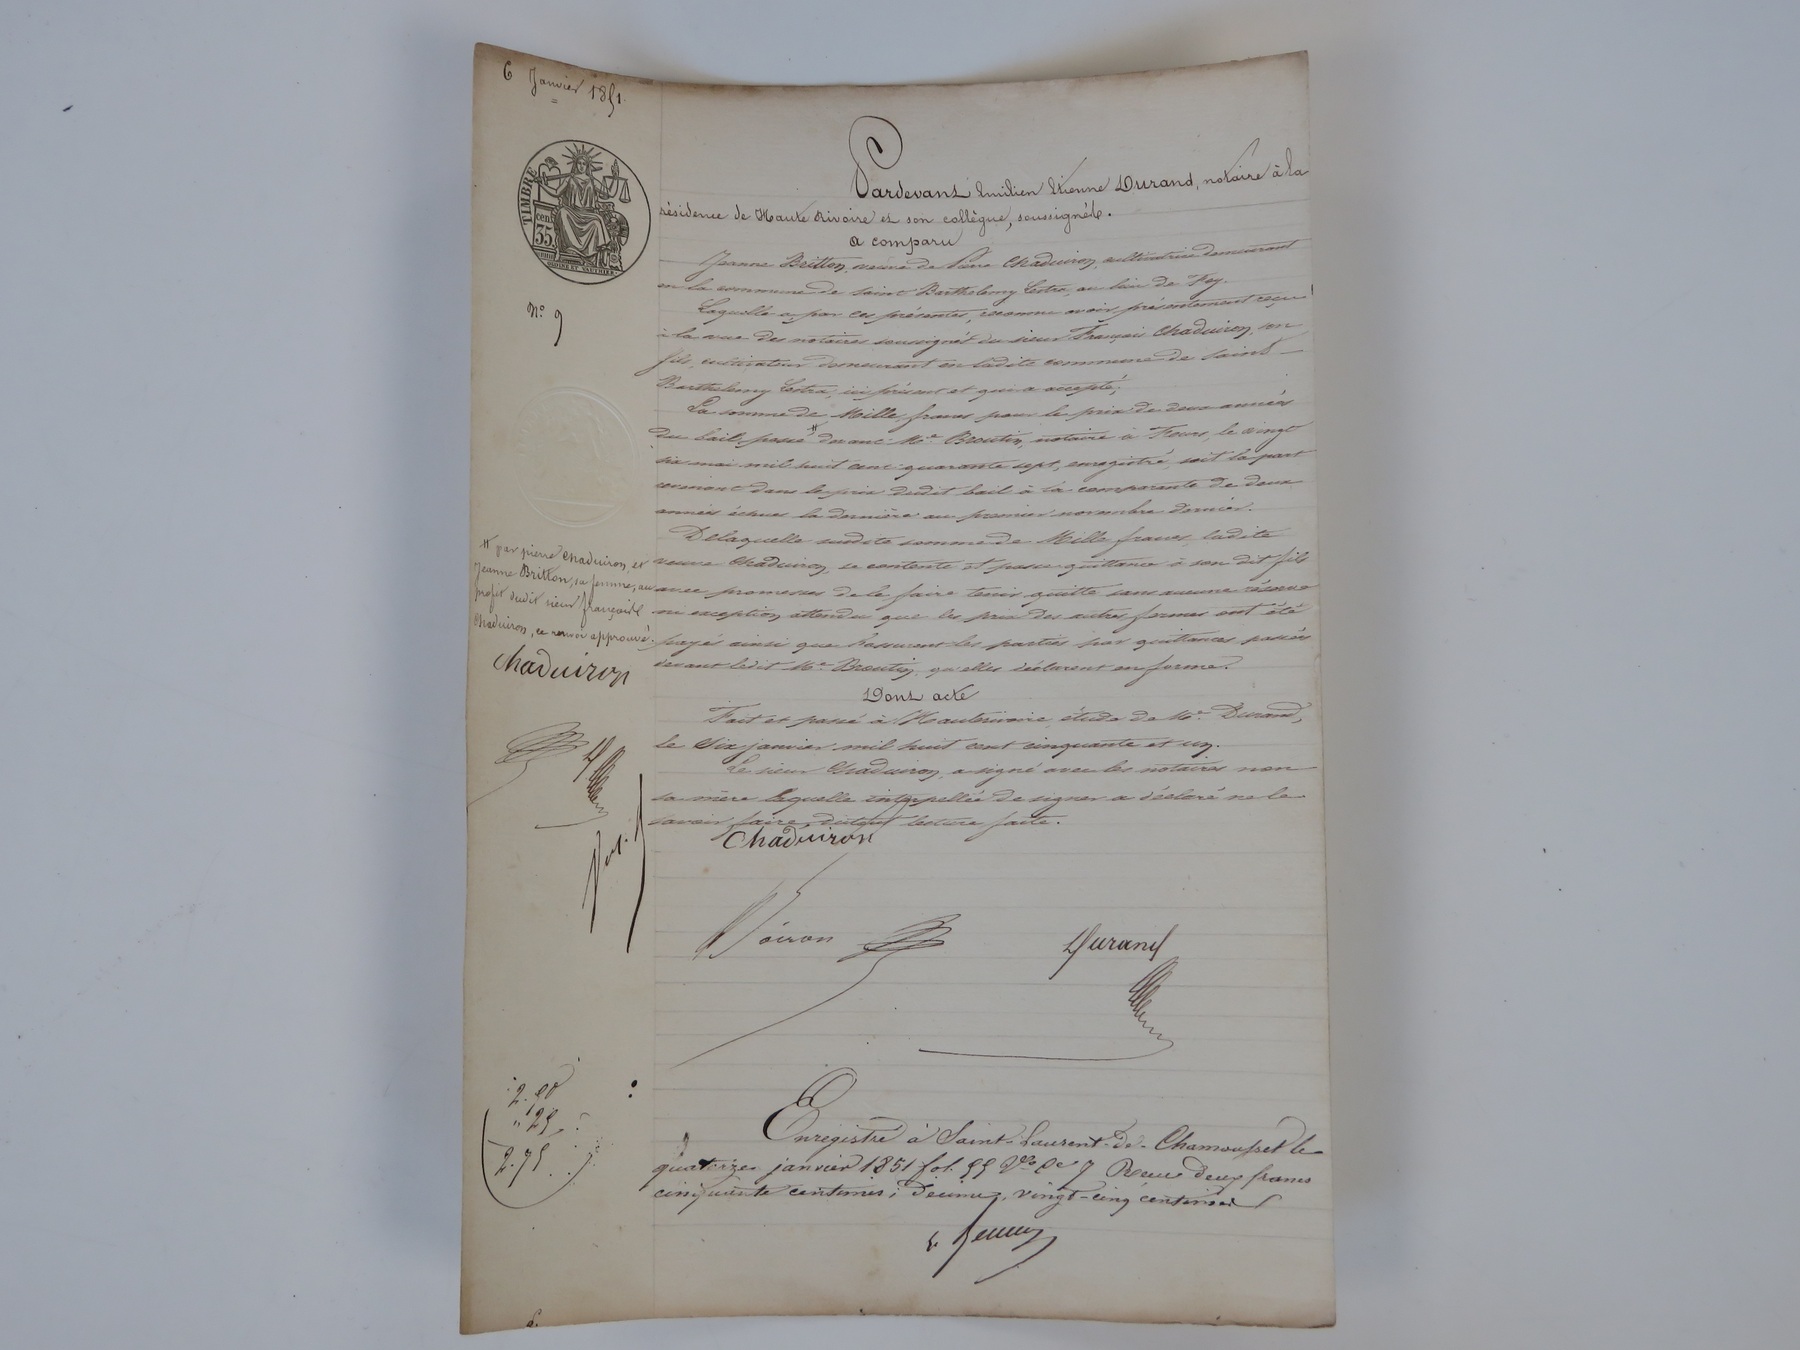 6 Janvier 1851.
TIMBRE
cen
35
No 9
Pardevant Emilien Etienne Durand, notaire à la
résidence de Haute Rivoire et son collègue, soussignés.
a comparu
Jeanne Britton, veuve de Pierre Chaduiron, cultivatrice demeurant
en la commune de Saint Barthelemy Lestra, au lieu de Fey.
Laquelle a, par ces présentes, reconnu avoir présentement reçu
à la vue des notaires soussignés du sieur François Chaduiron, son
fils, cultivateur demeurant en ladite commune de Saint
Barthelemy Lestra, ici présent et qui a accepté;
La somme de Mille francs pour le prix de deux années
du bail passé # devant Me Broutin, notaire à Feurs, le vingt
six mai mil huit cent quarante sept, enregistré, soit la part
revenant dans le prix dudit bail à la comparante de deux
années échues la dernière au premier novembre dernier.
De laquelle susdite somme de Mille francs, ladite
veuve Chaduiron, se contente et passe quittance à son dit fils
avec promesses de le faire tenir quitte sans aucune réserve
ni exception, attendu que les prix des autres fermes ont été
payés ainsi que l'assurent les parties par quittances passées
devant ledit Me Broutin, qu'elles déclarent en forme.
Dont acte
Fait et passé à Hauterivoire, étude de Me Durand,
le Six janvier mil huit cent cinquante et un.
Le sieur Chaduiron, a signé avec les notaires non
sa mère laquelle interpellée de signer a déclaré ne le
savoir faire, du tout lecture faite.
# par pierre Chaduiron, et
Jeanne Britton, sa femme, au
profit dudit sieur françois
Chaduiron, ce renvoi approuvé.
Chaduiron
Chaduiron
Voiron
Durand
2.50
" 25
2.75
Enregistré à Saint-Laurent-de-Chamousset le
quatorze janvier 1851 fol. 55 Vo Ce 7 Reçu deux francs
cinquante centimes; décime, vingt-cinq centimes